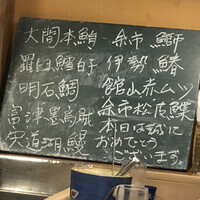 大間本鮪 余市 鰤
羅臼鱈白子 伊勢 鰆
明石鯛 館山赤ムツ
富津墨烏賊 余市松皮鰈
宍道湖鰻 本日は誠に
おめでとう
ございます。